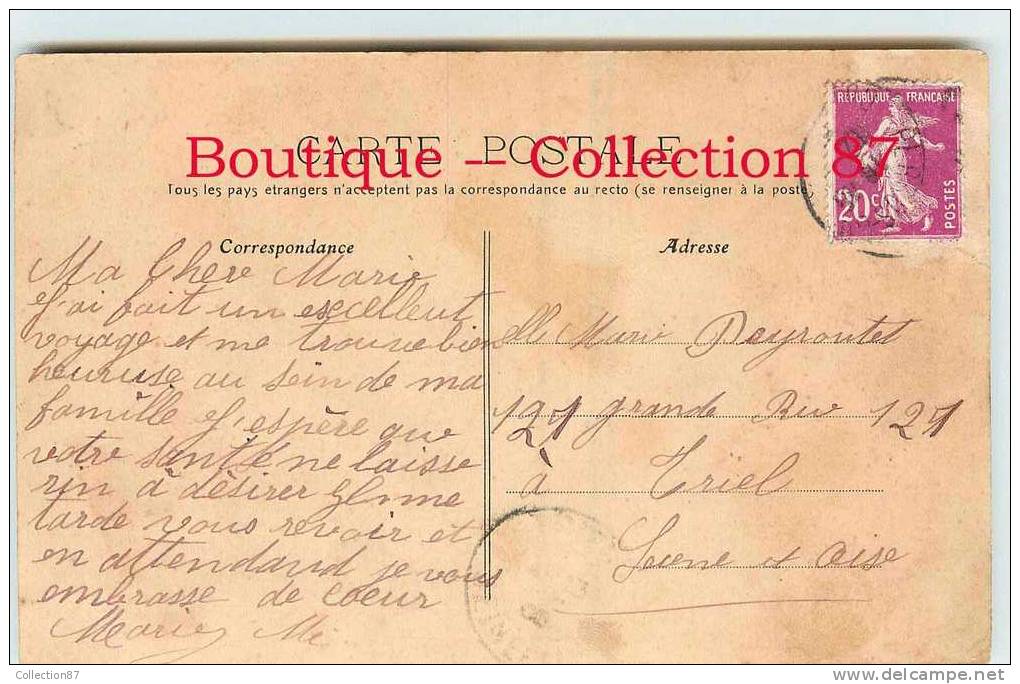 CARTE POSTALE
Boutique -- Collection 87
Tous les pays étrangers n'acceptent pas la correspondance au recto (se renseigner à la poste
REPUBLIQUE FRANÇAISE
20c
POSTES
Correspondance
Ma Chere Marie
J'ai fait un excellent
voyage et me trouve bien
heureuse au sein de ma
famille J'espère que
votre santé ne laisse
rin à désirer Il me
tarde vous revoir et
en attendand je vous
embrasse de coeur
Marie
Adresse
elle Marie Peyroutet
121 grande Rue 121
à Triel
Seene et Oise
Collection87
delcampe.net